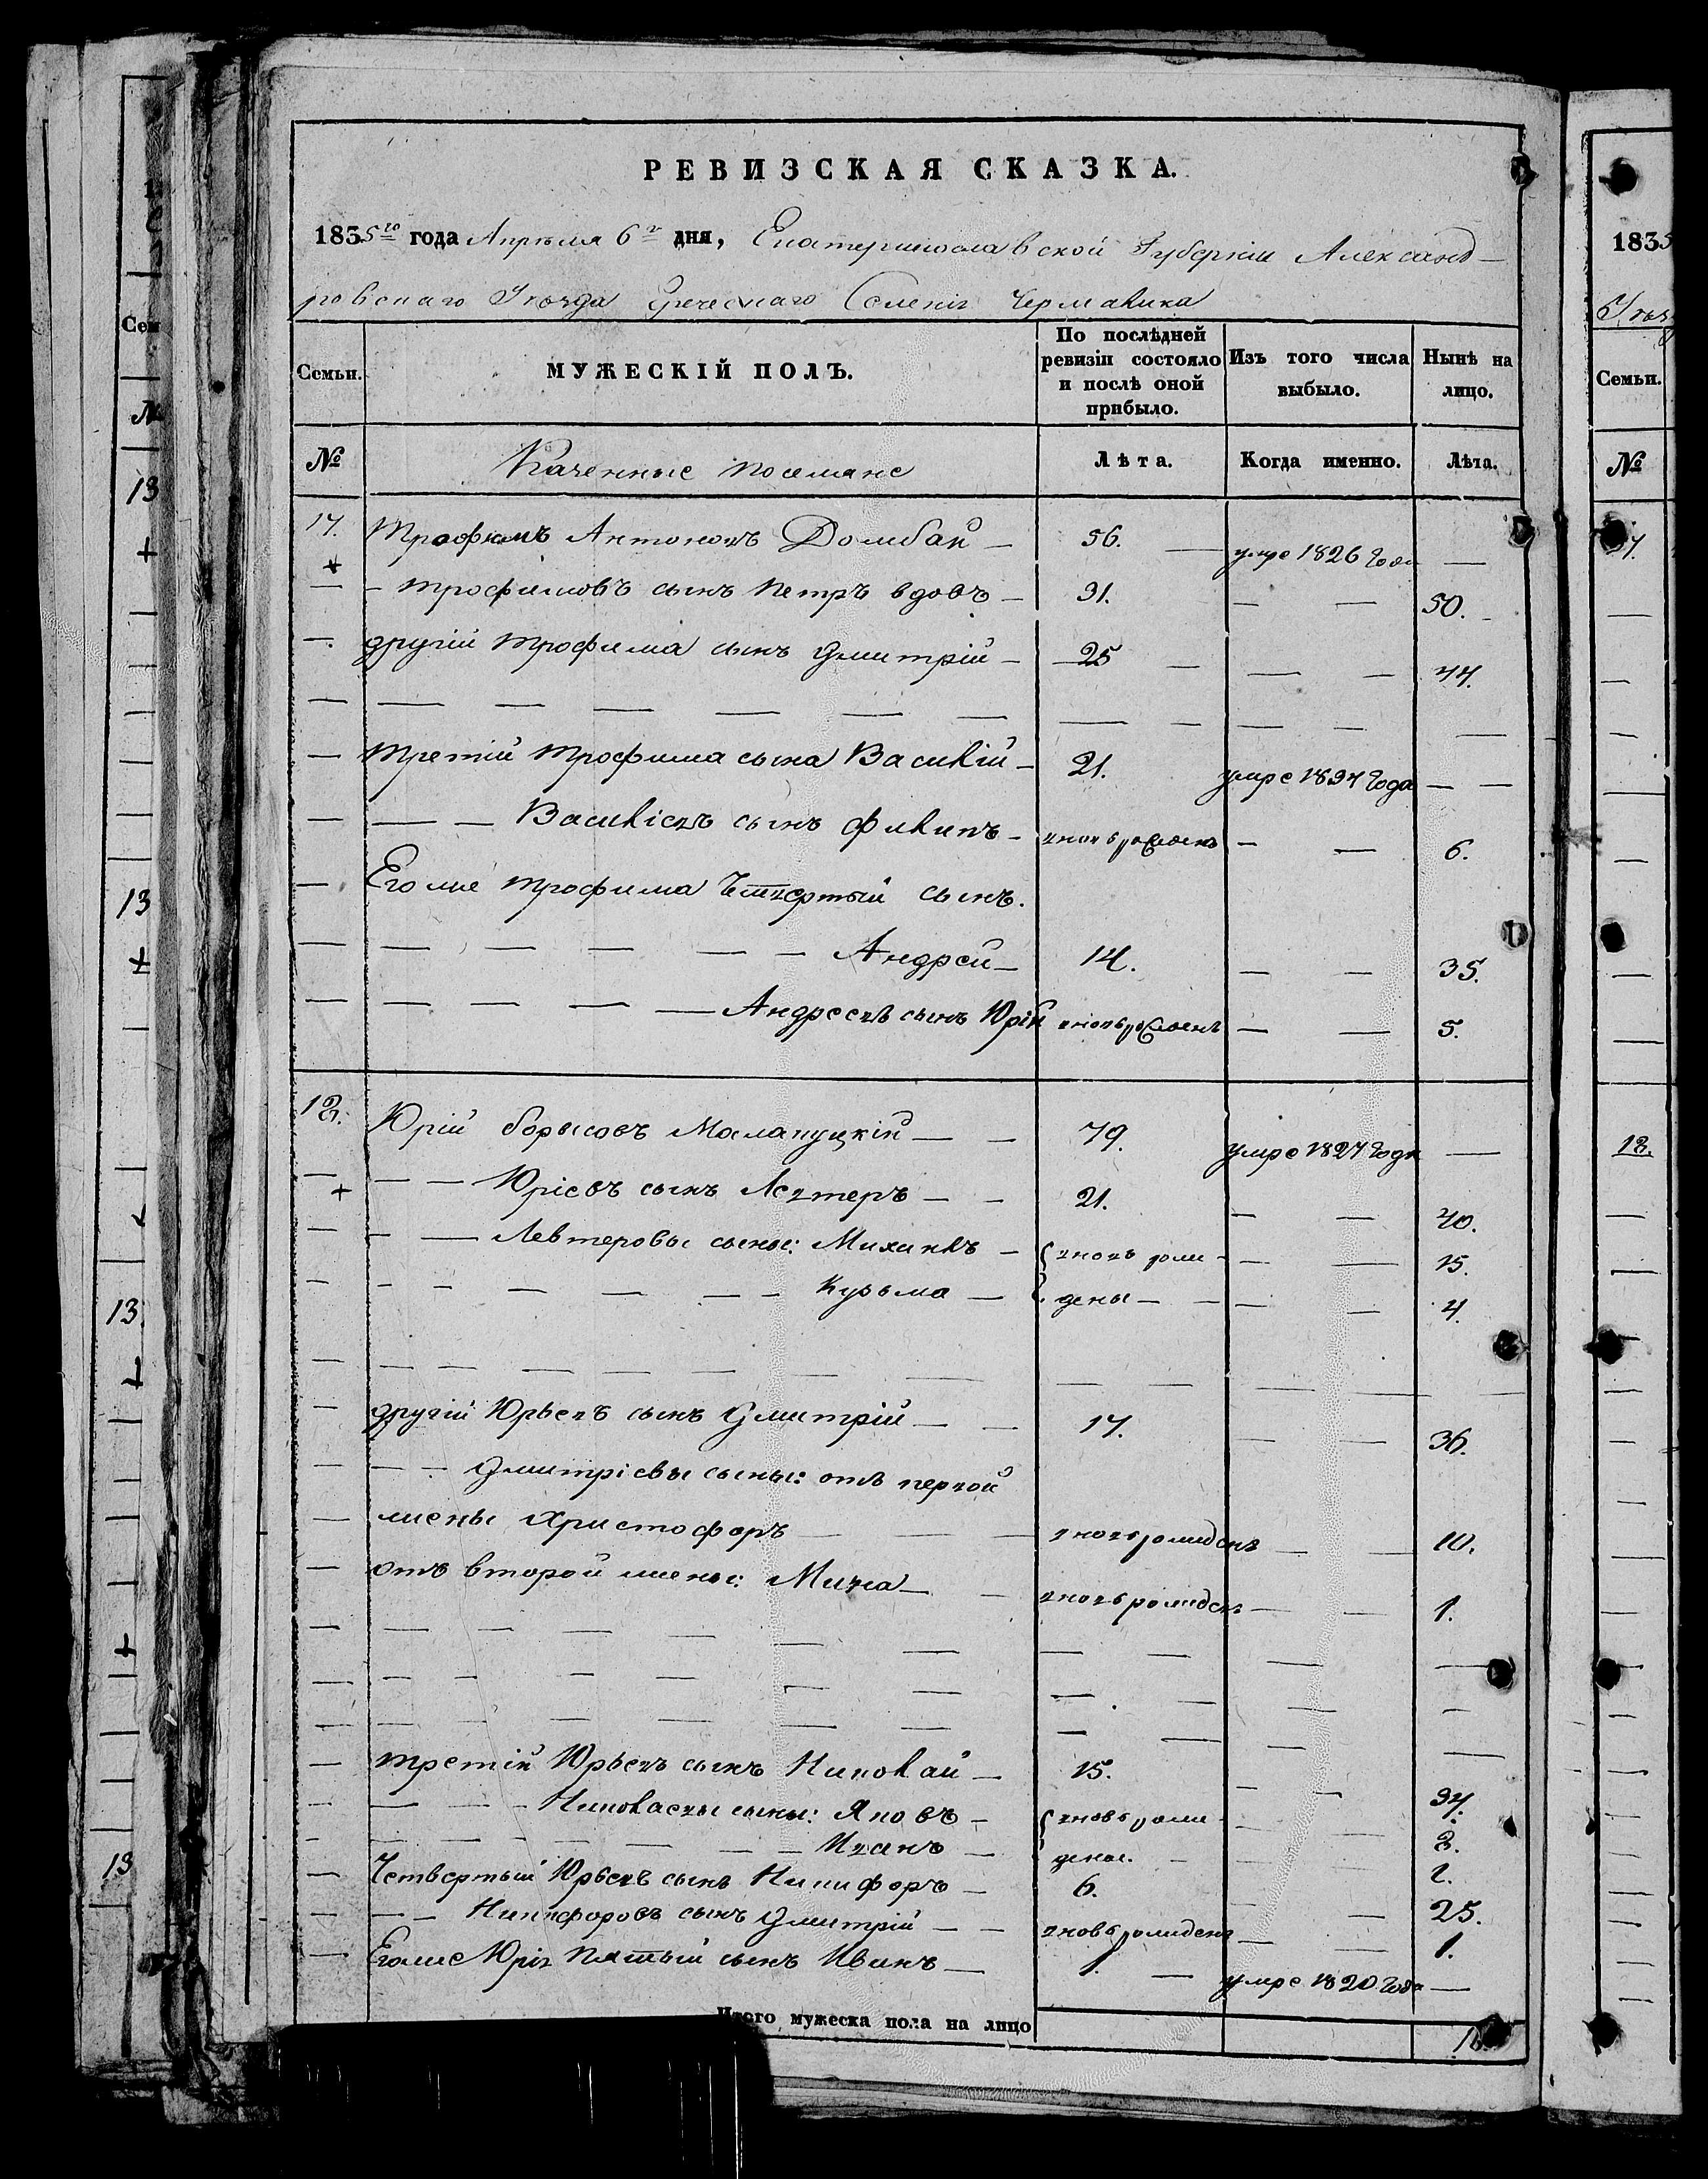 РЕВИЗСКАЯ СКАЗКА.
1835го года Апреля 6го дня, Екатеринославской Губерніи Александ-
ровскаго Уезда Греческаго Селенія Чермалика
Семьи. МУЖЕСКІЙ ПОЛЪ. По послѣдней ревизіи состояло и послѣ оной прибыло. Изъ того числа выбыло. Нынѣ на лицо.
№ Казенные поселяне Лѣта. Когда именно. Лѣта.
17. Трофимъ Антоновъ Домбай — 56. — умре 1826 года —
— - Трофимовъ сынъ Петръ вдовъ — 31. — — 50.
— другій Трофима сынъ Дмитрій — 25 — — — 44.
— третій Трофима сына Василій — 21. умре 1834 года — —
— — — Васильевъ сынъ Филипъ — вновь рожденъ — — 6.
— Егоже Трофима Четвертый сынъ.
— — — — — — Андрей — 14. — — 35.
— — — — — Андреевъ сынъ Юрій вновь рожденъ — — 5.
18. Юрій Борисовъ Малакуцкій — — 79. умре 1827 года —
— — — Юріевъ сынъ Левтеръ — — 21. — — 40.
+
— — — Левтеровы сыны: Михаилъ — вновь рож- — — 15.
— — — — — — Кузьма — дены — — — — 4.
— другій Юрьевъ сынъ Дмитрій — — 17. — — 36.
— — — Дмитріевы сыны: отъ первой
— жены Христофоръ — — — вновь рожденъ — — 10.
— отъ второй жены: Мина — — вновь рожденъ — — 1.
— третій Юрьевъ сынъ Николай — 15. — — 34.
— — — Николаевы сыны: Яковъ — вновь рож- — — 3.
— — — — — — Иванъ — дены. — — — 2.
— Четвертый Юрьевъ сынъ Никифоръ — 6. — — 25.
— — — Никифоровъ сынъ Дмитрій — — вновь рожденъ — — 1.
— Егоже Юрія пятый сынъ Иванъ — 1. — умре 1820 года —
Итого мужеска пола на лицо
1835
Семьи.
№
18.
13
13
13
13